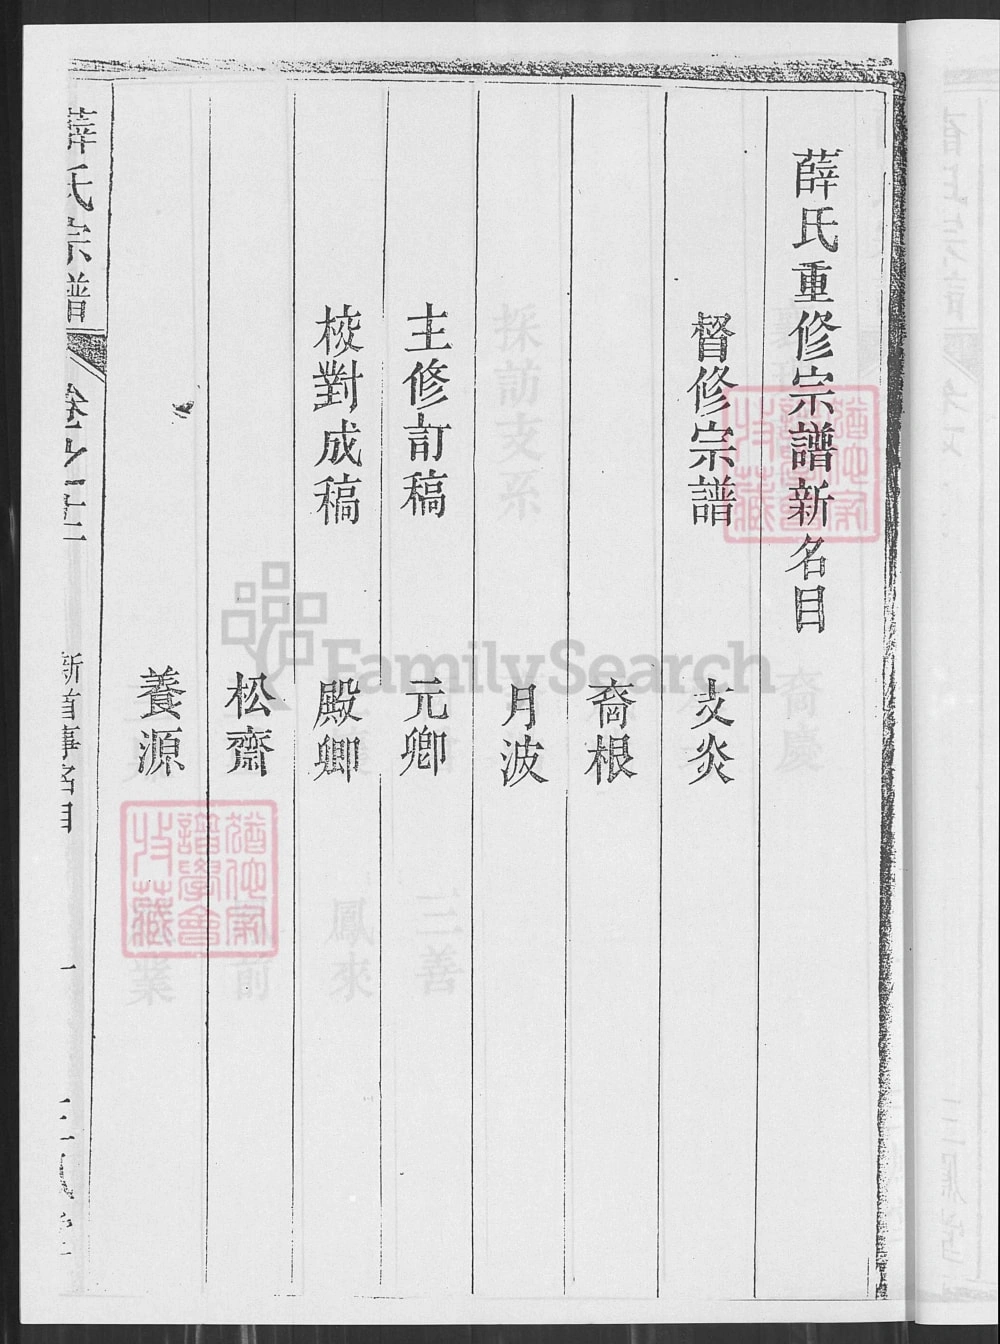 薛氏重修宗譜新名目
督修宗譜 文炎
裔根
月波
主修訂稿 元卿
校對成稿 殿卿
松齋
養源
薛氏宗譜 卷之 新首事名目 一
FamilySearch
譜學會
採訪支系
裔慶
三善
鳳來